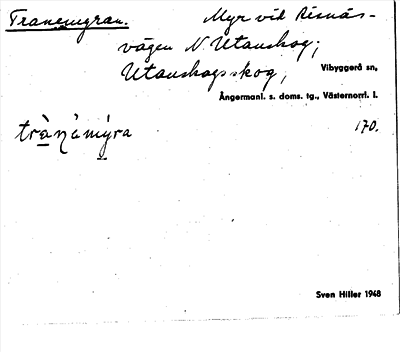 Tranemyran. Myr vid Risnäs-
vägen N Utanskog;
Utanskogsskog, Vibyggerå sn,
Ångermanl. s. doms. tg., Västernorrl. l.
trànåmýra 170.
Sven Hiller 1948